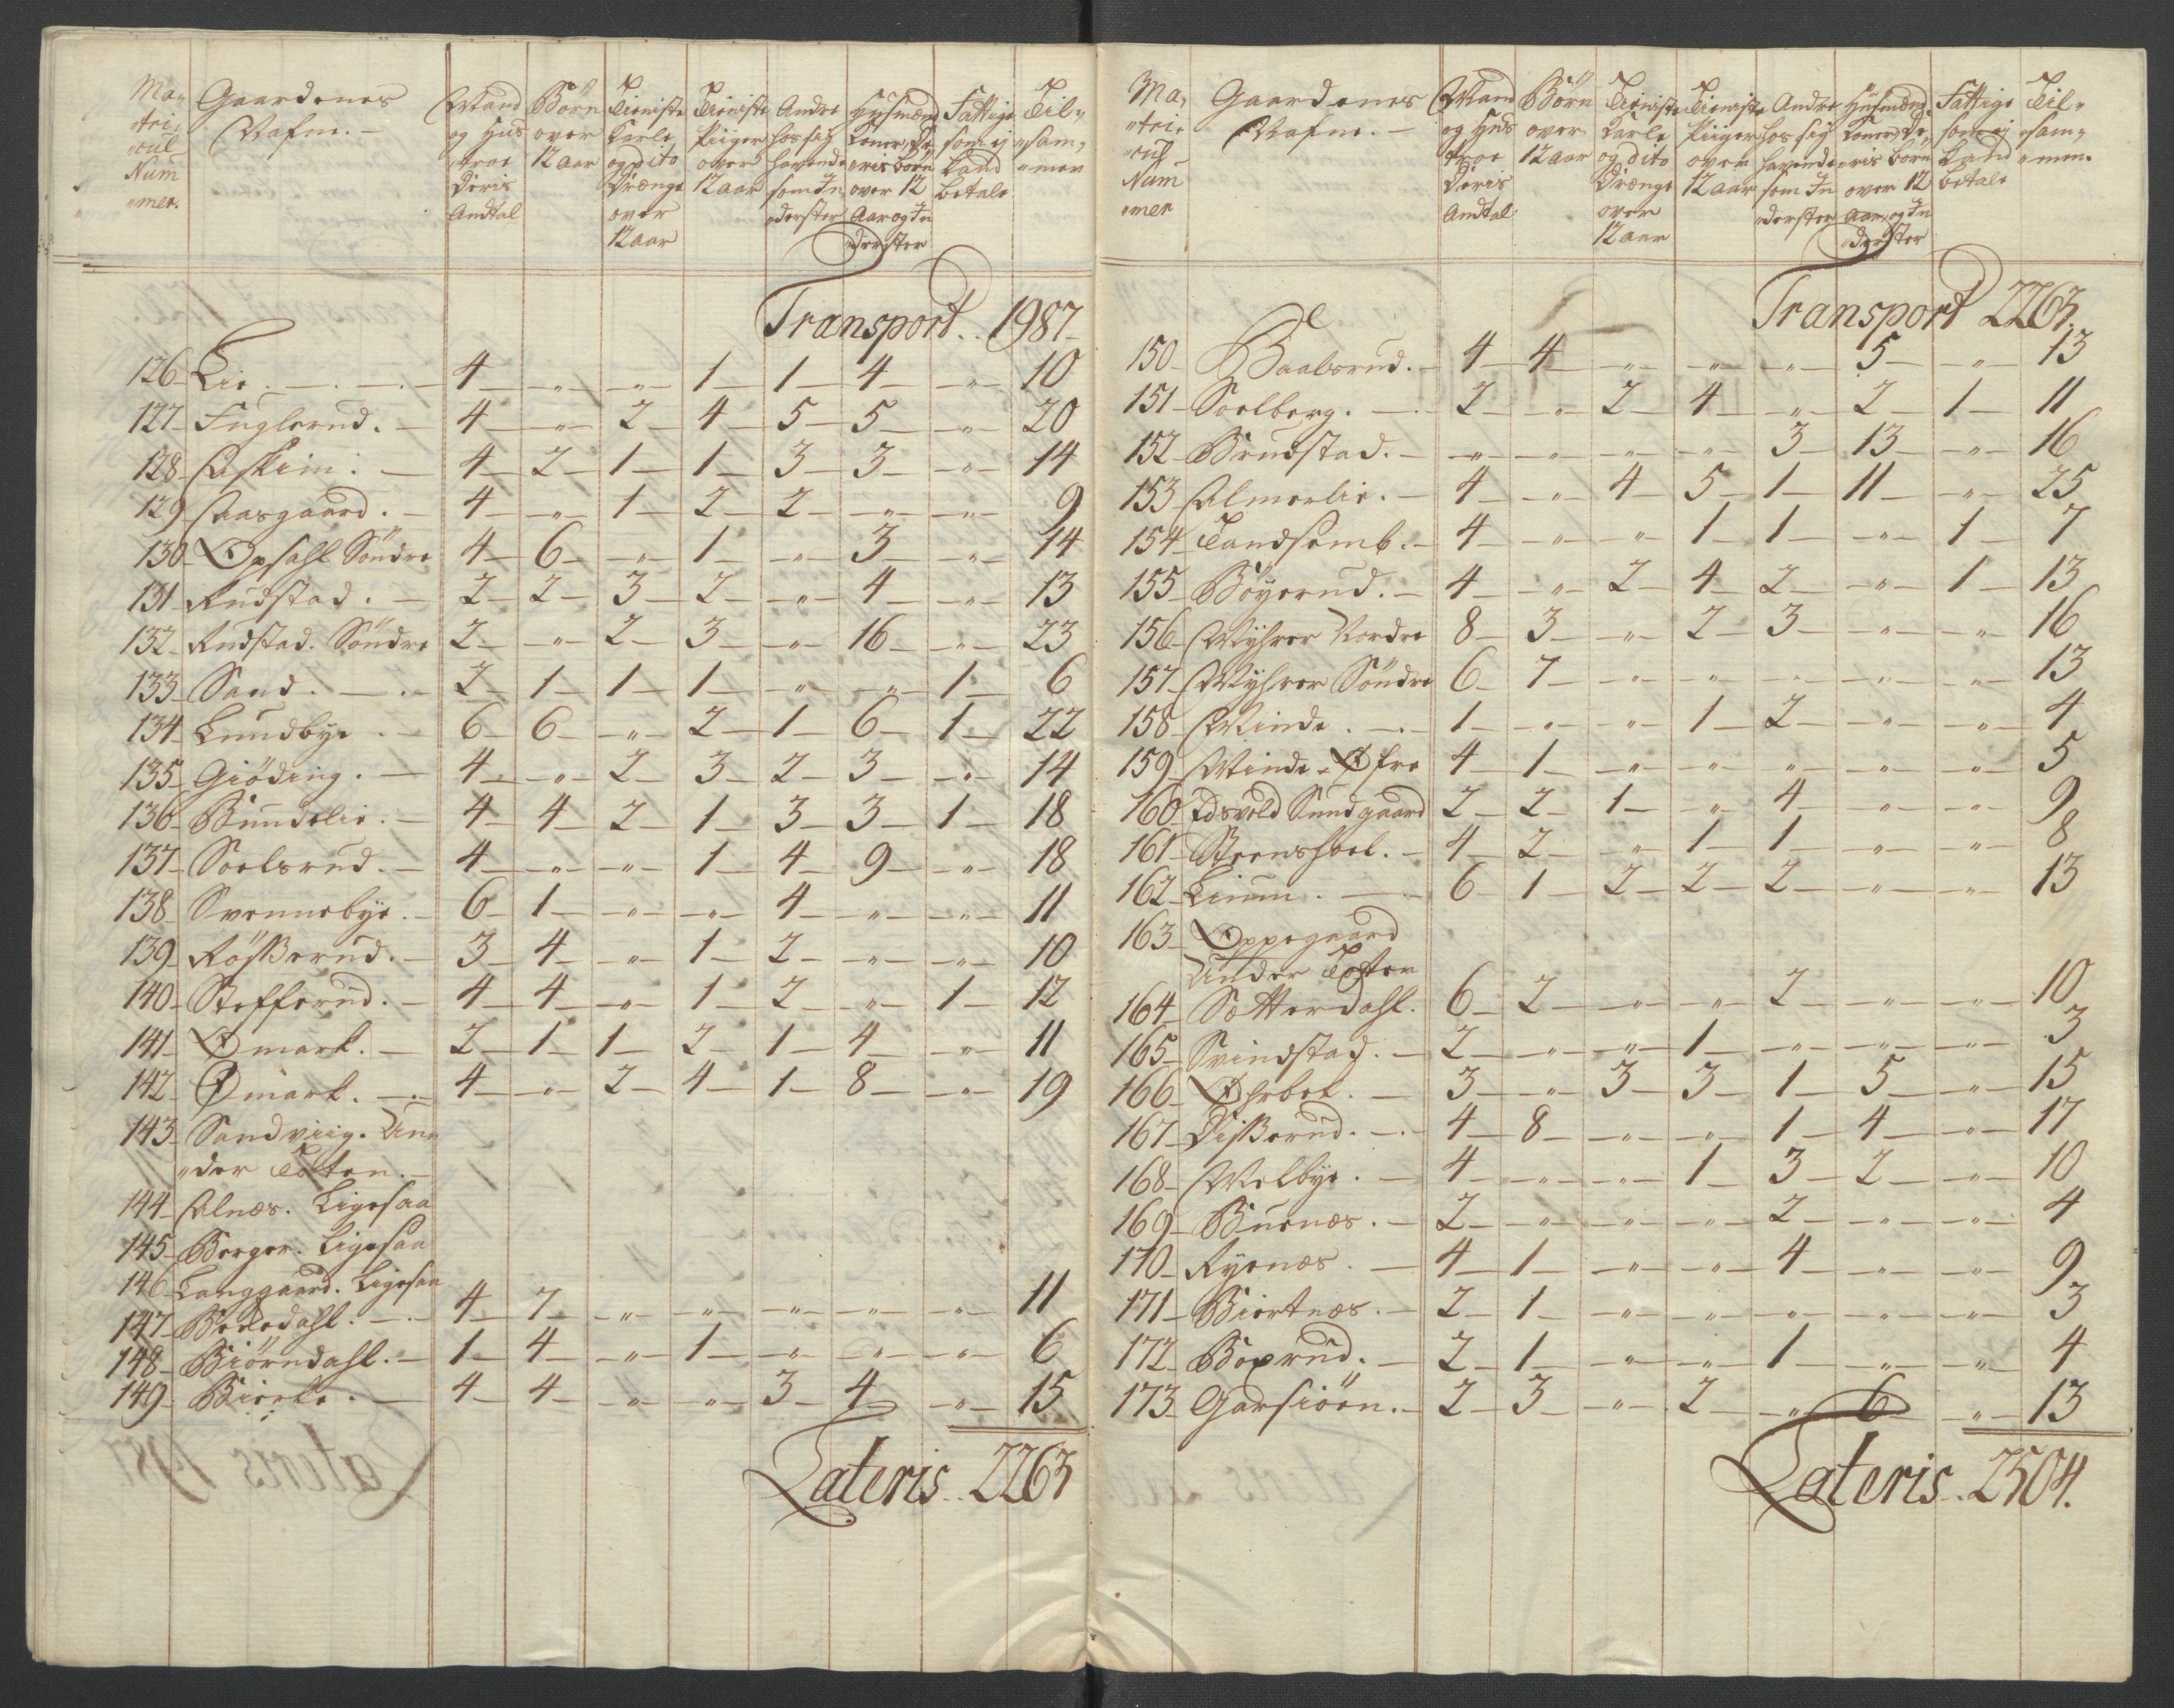 Ma„ Gaardenes Mand Börn Tieniste Tieniste Andre Huusmænd Fattige Til„
„tri„ Nafne. – og Hus over Karle Piiger hos sig Koner, De„ som ej „sam„
„cul troe 12 aar og dito over havende „ris börn kand „men
Num Deris Drænge 12 aar som In over 12 betale
„mer. Andtal over „derster Aar og In
12 aar „derster
Transport . . 1987
126 Lie . 4 „ „ 1 1 4 „ 10
127 Fuglerud . 4 „ 2 4 5 5 „ 20
128 Askim . 4 2 1 1 3 3 „ 14
129 Aasgaard . 4 „ 1 2 2 „ „ 9
130 Opsahl Söndre 4 6 „ 1 „ 3 „ 14
131 Rudstad . 2 2 3 2 „ 4 „ 13
132 Rudstad. Söndre 2 „ 2 3 „ 16 „ 23
133 Sand . 2 1 1 1 „ „ 1 6
134 Lundbye . 6 6 „ 2 1 6 1 22
135 Giöding . 4 „ 2 3 2 3 „ 14
136 Bundelie . 4 4 2 1 3 3 1 18
137 Soelsrud . 4 „ „ 1 4 9 „ 18
138 Svennebye . 6 1 „ „ 4 „ „ 11
139 Rösserud . 3 4 „ 1 2 „ „ 10
140 Stefferud . 4 4 „ 1 2 „ 1 12
141 Ømark . 2 1 1 2 1 4 „ 11
142 Ømark . 4 „ 2 4 1 8 „ 19
143 Sandviig. Un„
„der Toten.
144 Alnæs. Ligesaa
145 Berger. Ligesaa
146 Langgaard. Ligesaa
147 Bededahl . 4 7 „ „ „ „ „ 11
148 Biörndahl . 1 4 „ 1 „ „ „ 6
149 Bierke . 4 4 „ „ 3 4 „ 15
Lateris . . 2263
Ma„ Gaardenes Mand Börn Tieniste Tieniste Andre Husmænd Fattige Til„
„tri„ Nafne. – og Hus over Karle Piiger hos sig Koner De„ som ej „sam„
„cul troe 12 aar og dito over havende „ris börn kand „men.
Num Deris Drænge 12 aar som In over 12 betale
„mer Andtal over „derster Aar, og In
12 aar „derster
Transport 2263.
150 Baalsrud . 4 4 „ „ „ 5 „ 13
151 Soelberg . 2 „ 2 4 „ 2 1 11
152 Brudstad . „ „ „ „ 3 13 „ 16
153 Almerlie . 4 „ 4 5 1 11 „ 25
154 Tandsemb . 4 „ „ 1 1 „ 1 7
155 Böyerud . 4 „ 2 4 2 „ 1 13
156 Myhrer Nordre 8 3 „ 2 3 „ „ 16
157 Myhrer Söndre 6 7 „ „ „ „ „ 13
158 Minde . 1 „ „ 1 2 „ „ 4
159 Minde - Øfre 4 1 „ „ „ „ „ 5
160 Edsvold Sundgaard 2 2 1 „ 4 „ „ 9
161 Steenshoel . 4 2 „ 1 1 „ „ 8
162 Linum . 6 1 2 2 2 „ „ 13
163 Oppegaard
Under Toten
164 Sætterdahl . 6 2 „ „ 2 „ „ 10
165 Svindstad . 2 „ „ 1 „ „ „ 3
166 Øhrbek . 3 „ 3 3 1 5 „ 15
167 Disserud . 4 8 „ „ 1 4 „ 17
168 Melbye . 4 „ „ 1 3 2 „ 10
169 Buenæs . 2 „ „ „ 2 „ „ 4
170 Ryenæs . 4 1 „ „ 4 „ „ 9
171 Biertnæs . 2 1 „ „ „ „ „ 3
172 Boxrud . 2 1 „ „ 1 „ „ 4
173 Garsiöen . 2 3 „ 2 „ 6 „ 13
Lateris . 2504.